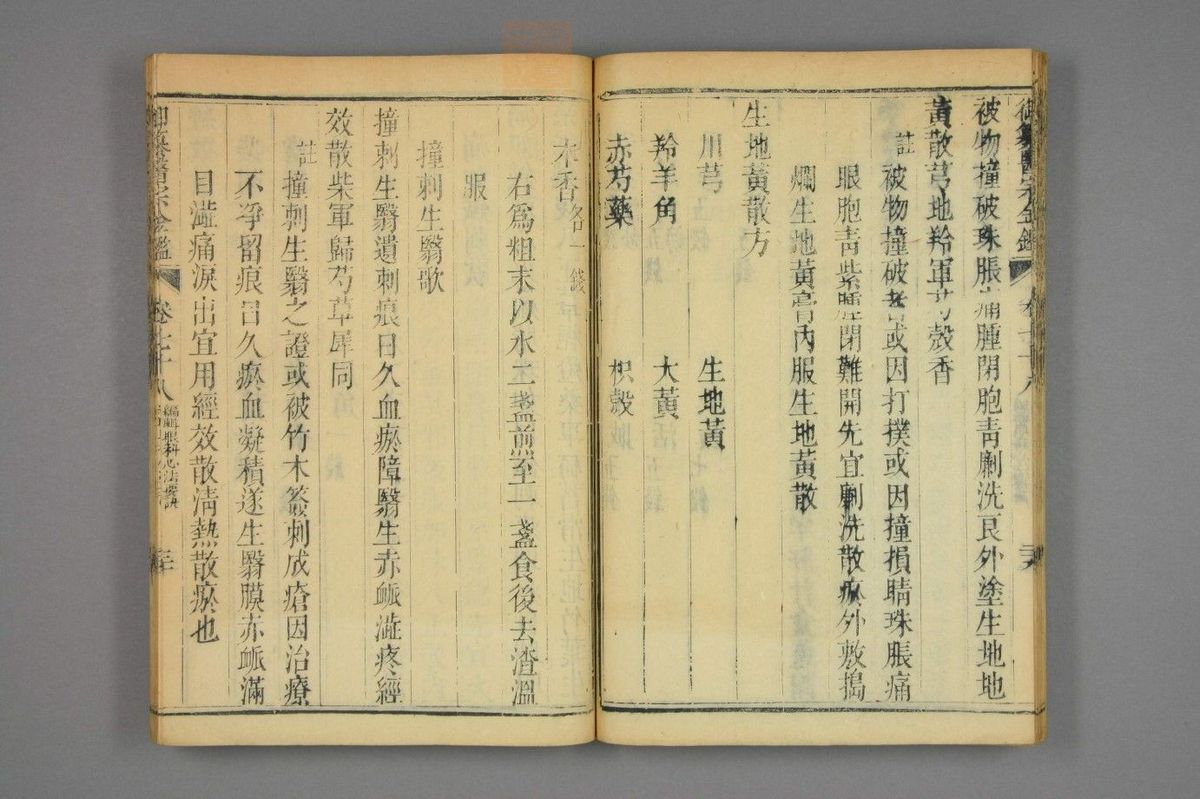 御纂醫宗金鑑
被物撞破珠脹痛腫閉胞青劆洗艮外塗生地地
黃散芎地羚軍芍殼香
註 被物撞破者或因打撲或因撞損睛珠脹痛
眼胞青紫腫閉難開先宜劆洗散瘀外敷搗
爛生地黃膏內服生地黃散
生地黃散方
川芎 生地黃
羚羊角 大黃
赤芍藥 枳殼
木香各一錢
右爲粗末以水二盞煎至一盞食後去渣溫
服
撞刺生翳歌
撞刺生翳遺刺痕日久血瘀障翳生赤衇澁疼經
效散柴軍歸芍草犀同
註 撞刺生翳之證或被竹木簽刺成瘡因治療
不淨留痕日久瘀血凝積遂生翳膜赤衇滿
目澁痛淚出宜用經效散淸熱散瘀也
御纂醫宗金鑑 卷七十八 編輯眼科心法要訣